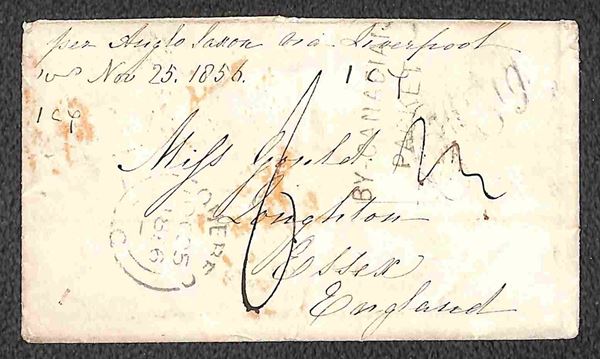 per Anglo Saxon via Liverpool
Nov 25. 1856.
BY CANADIAN
PACKET
Miss Gould
Loughton
Essex
England
1856